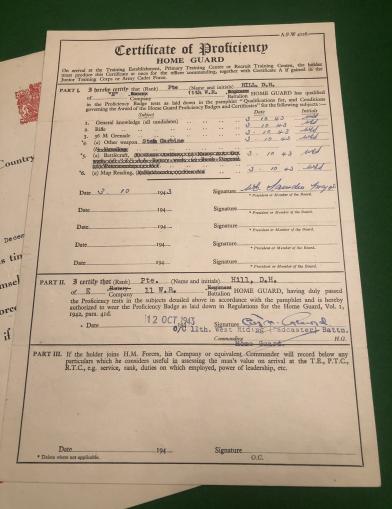 A.F.W 4026
Certificate of Proficiency
HOME GUARD
On arrival at the Training Establishment, Primary Training Centre or Recruit Training Centre, the holder
must produce this Certificate at once for the officer commanding, together with Certificate A if gained in the
Junior Training Corps or Army Cadet Force.
PART I. I hereby certify that (Rank) Pte (Name and initials) HILL, D.H.
of "E" Battery Company 11th W.R. Regiment Battalion HOME GUARD has qualified
in the Proficiency Badge tests as laid down in the pamphlet "Qualifications for, and Conditions
governing the Award of the Home Guard Proficiency Badges and Certificates" for the following subjects :—
Subject Date Initials
1. General knowledge (all candidates) 3 10 43
2. Rifle 3 10 43
3. 36 M Grenade 3 10 43
*4. (a) Other weapon. Sten Carbine 3 10 43
*5. (a) Battlecraft, 3 10 43
*6. (a) Map Reading, 3 10 43
Date 3 10 1943 Signature
* President or Member of the Board.
Date 194 Signature
* President or Member of the Board.
Date 194 Signature
* President or Member of the Board.
Date 194 Signature
* President or Member of the Board.
Date 194 Signature
* President or Member of the Board.
PART II. I certify that (Rank) Pte. (Name and initials) Hill, D.H.
of E Battery Company 11 W.R. Regiment Battalion HOME GUARD, having duly passed
the Proficiency tests in the subjects detailed above in accordance with the pamphlet and is hereby
authorized to wear the Proficiency Badge as laid down in Regulations for the Home Guard, Vol. 1,
1942, para. 41d.
Date 12 OCT 1943 Signature
O/C 11th. West Riding (Tadcaster) Battn.
Commanding H.G.
Home Guard.
PART III. If the holder joins H.M. Forces, his Company or equivalent Commander will record below any
particulars which he considers useful in assessing the man's value on arrival at the T.E., P.T.C.,
R.T.C., e.g. service, rank, duties on which employed, power of leadership, etc.
Date 194 Signature
* Delete where not applicable. O.C.
Country
Decem
if